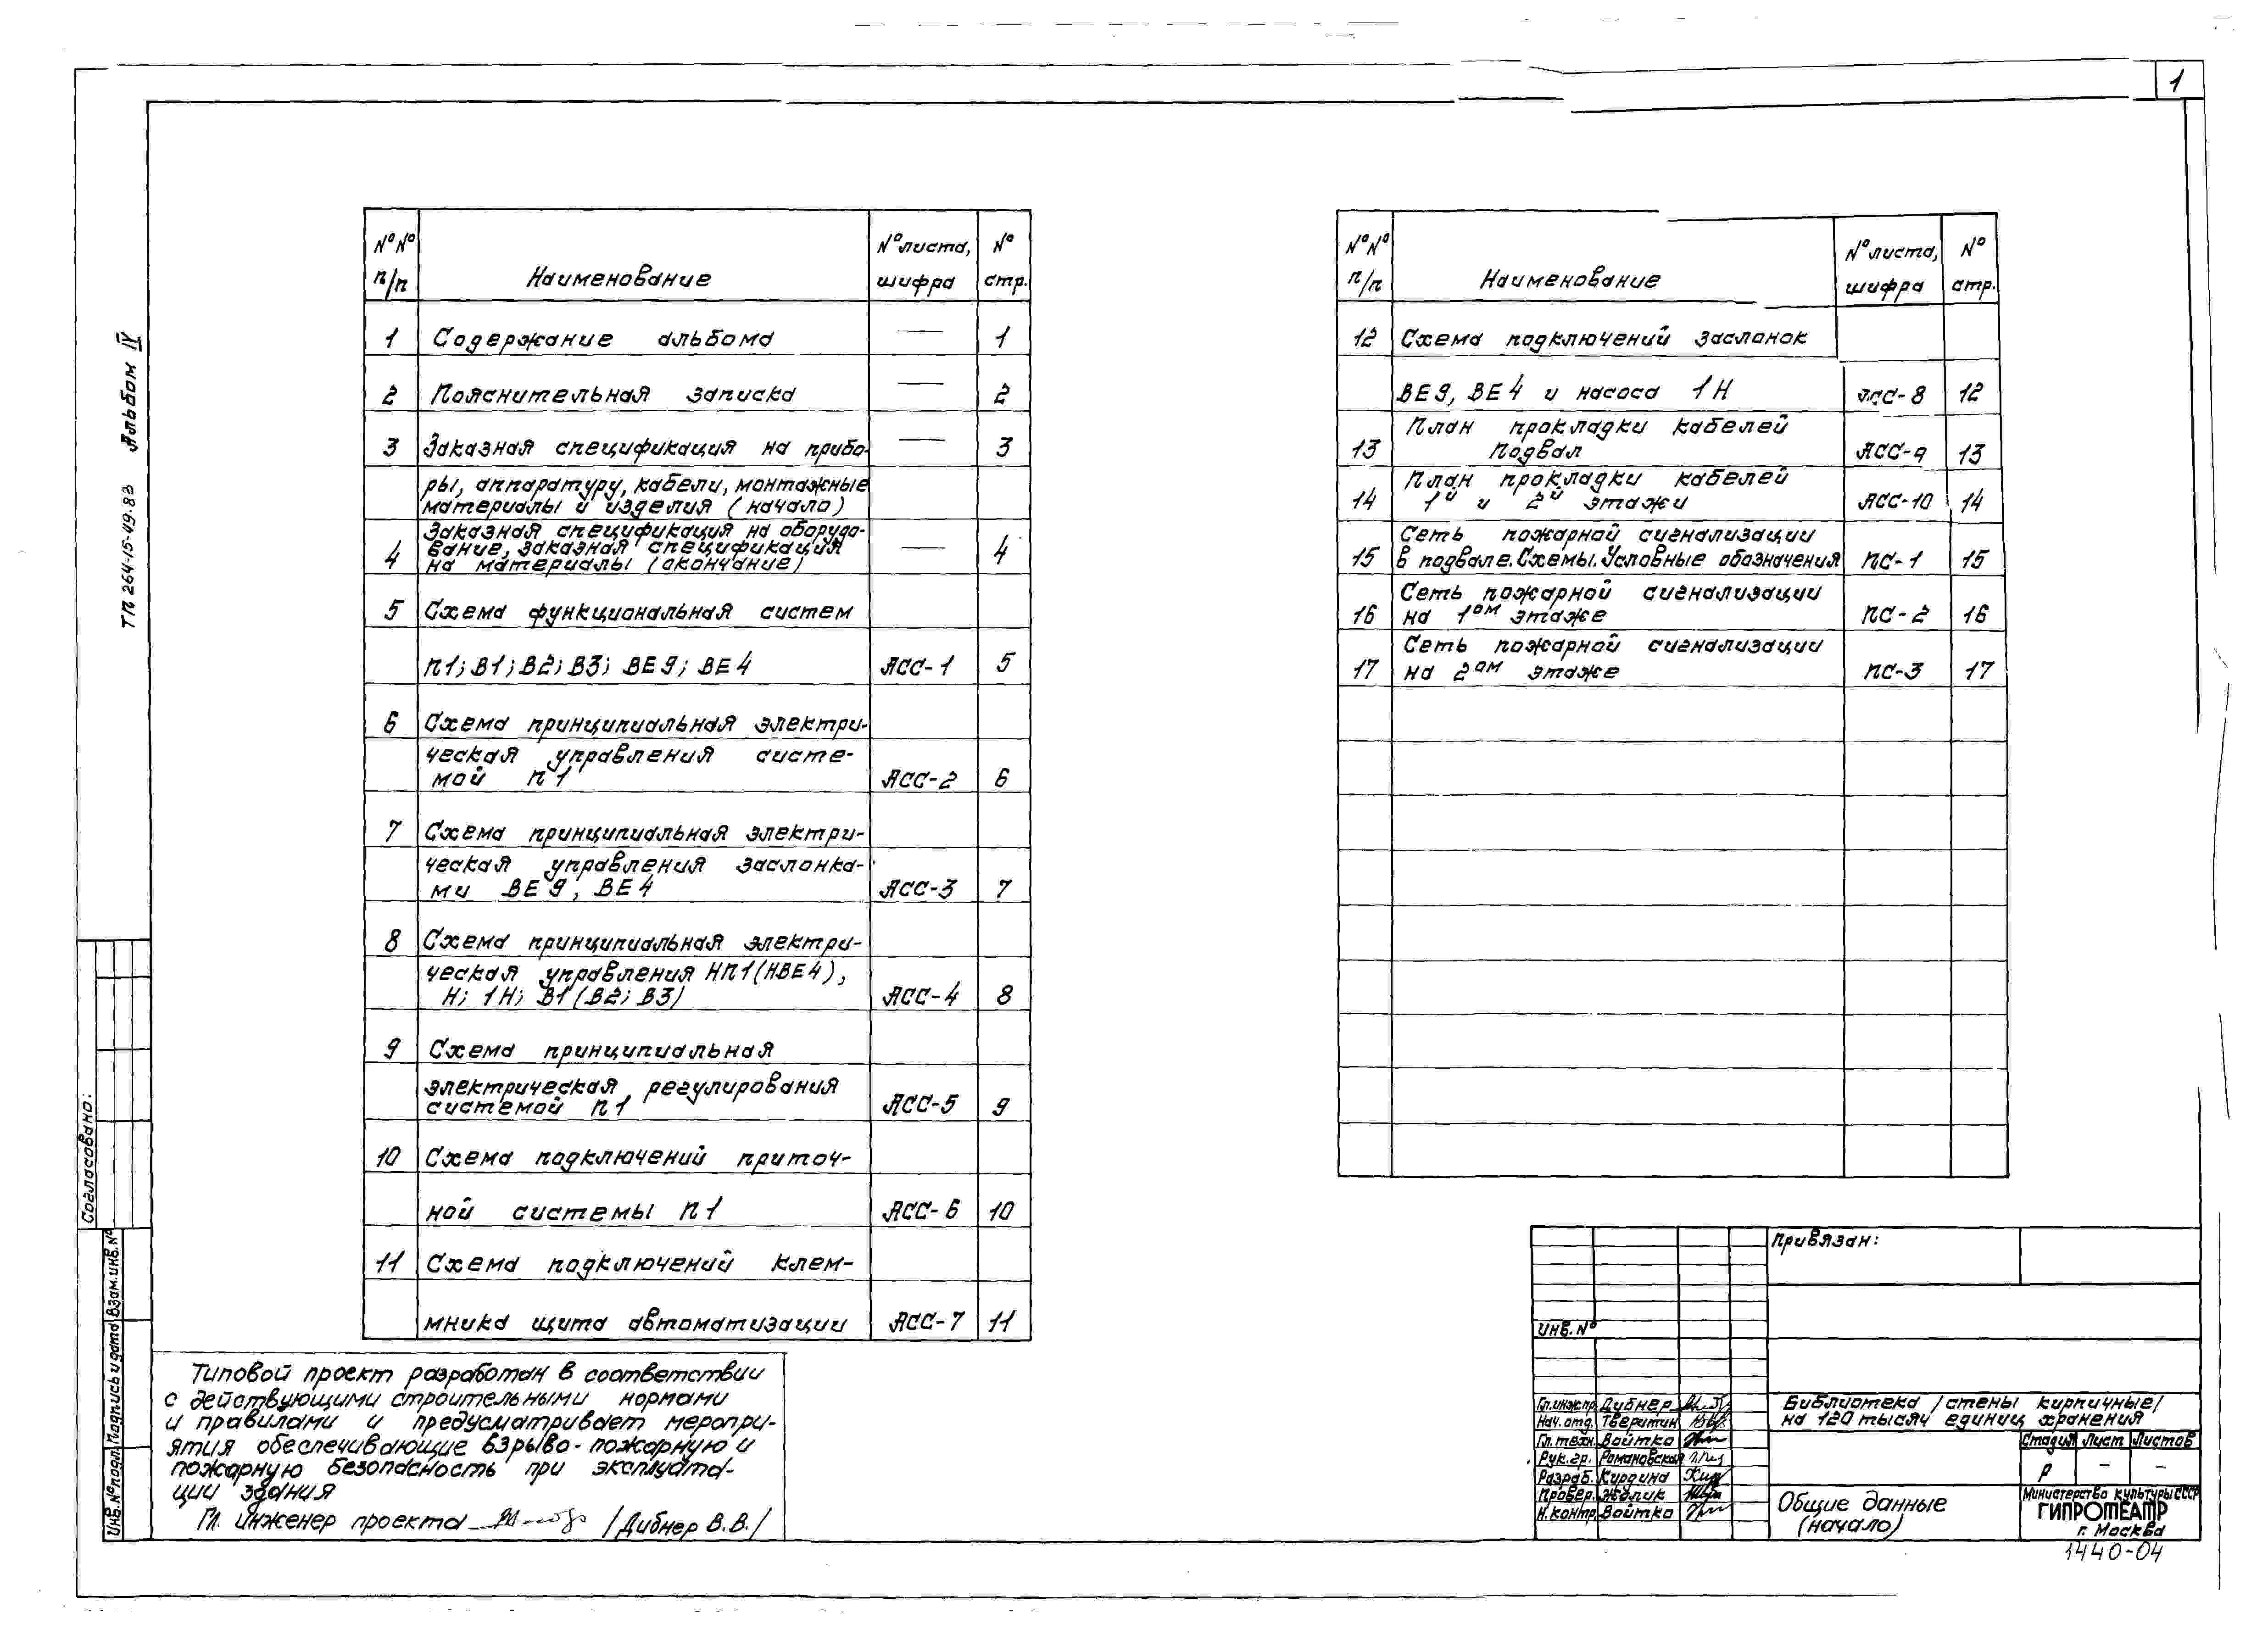 1
ТП 264-15-49.83 Альбом IV
№№ п/п Наименование № листа, шифра № стр.
1 Содержание альбома — 1
2 Пояснительная записка — 2
3 Заказная спецификация на прибо- — 3
ры, аппаратуру, кабели, монтажные
материалы и изделия (начало)
Заказная спецификация на оборудо-
4 вание, заказная спецификация — 4
на материалы (окончание)
5 Схема функциональная систем
П1; В1; В2; В3; ВЕ9; ВЕ4 АСС-1 5
6 Схема принципиальная электри-
ческая управления систе-
мой П1 АСС-2 6
7 Схема принципиальная электри-
ческая управления заслонка-
ми ВЕ9, ВЕ4 АСС-3 7
8 Схема принципиальная электри-
ческая управления НП1(НВЕ4),
Н; 1Н; В1 (В2; В3) АСС-4 8
9 Схема принципиальная
электрическая регулирования
системой П1 АСС-5 9
10 Схема подключений приточ-
ной системы П1 АСС-6 10
11 Схема подключений клем-
мника щита автоматизации АСС-7 11
№№ п/п Наименование № листа, шифра № стр.
12 Схема подключений заслонок
ВЕ9, ВЕ4 и насоса 1Н АСС-8 12
План прокладки кабелей
13 Подвал АСС-9 13
План прокладки кабелей
14 1й и 2й этажи АСС-10 14
Сеть пожарной сигнализации
15 в подвале. Схемы. Условные обозначения ПС-1 15
Сеть пожарной сигнализации
16 на 1ом этаже ПС-2 16
Сеть пожарной сигнализации
17 на 2ом этаже ПС-3 17
Согласовано:
Инв. № подл. Подпись и дата Взам. инв. №
Типовой проект разработан в соответствии
с действующими строительными нормами
и правилами и предусматривает меропри-
ятия обеспечивающие взрыво-пожарную и
пожарную безопасность при эксплуата-
ции здания
Гл. инженер проекта /Дибнер В.В./
Привязан:
Инв. №
Гл.инж.пр. Дибнер
Нач. отд. Тверитин
Гл. техн. Войтко
Рук. гр. Романовская
Разраб. Курдина
Провер. Жданик
Н. контр. Войтко
Библиотека /стены кирпичные/
на 120 тысяч единиц хранения
Стадия Лист Листов
Р – –
Общие данные
(начало)
Министерство культуры СССР
ГИПРОТЕАТР
г. Москва
1440-04